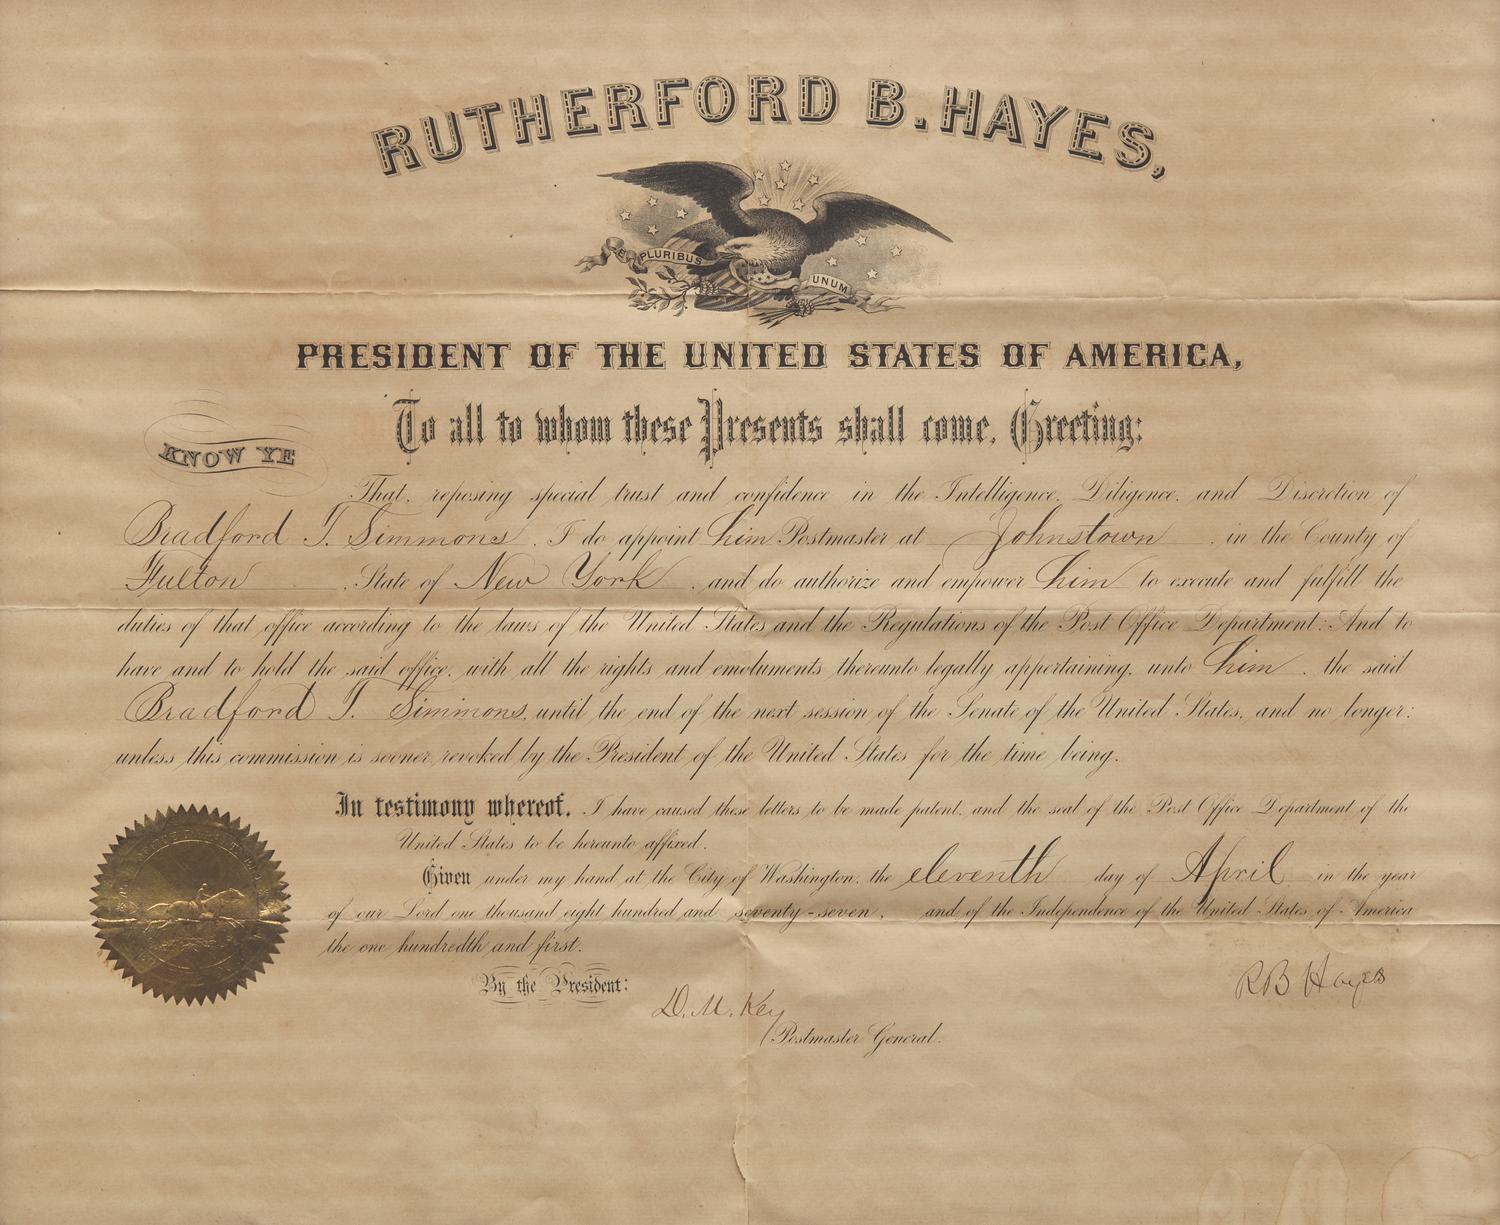 RUTHERFORD B. HAYES,
E PLURIBUS UNUM
PRESIDENT OF THE UNITED STATES OF AMERICA,
To all to whom these Presents shall come, Greeting:
KNOW YE
That, reposing special trust and confidence in the Intelligence, Diligence, and Discretion of
Bradford T. Simmons, I do appoint him Postmaster at Johnstown, in the County of
Fulton, State of New York, and do authorize and empower him to execute and fulfill the
duties of that office according to the laws of the United States and the Regulations of the Post Office Department: And to
have and to hold the said office, with all the rights and emoluments thereunto legally appertaining, unto him, the said
Bradford T. Simmons, until the end of the next session of the Senate of the United States, and no longer;
unless this commission is sooner revoked by the President of the United States for the time being.
In testimony whereof, I have caused these letters to be made patent, and the seal of the Post Office Department of the
United States to be hereunto affixed.
Given under my hand at the City of Washington, the eleventh day of April in the year
of our Lord one thousand eight hundred and seventy-seven, and of the Independence of the United States of America
the one hundredth and first.
R B Hayes
By the President:
D. M. Key
Postmaster General.